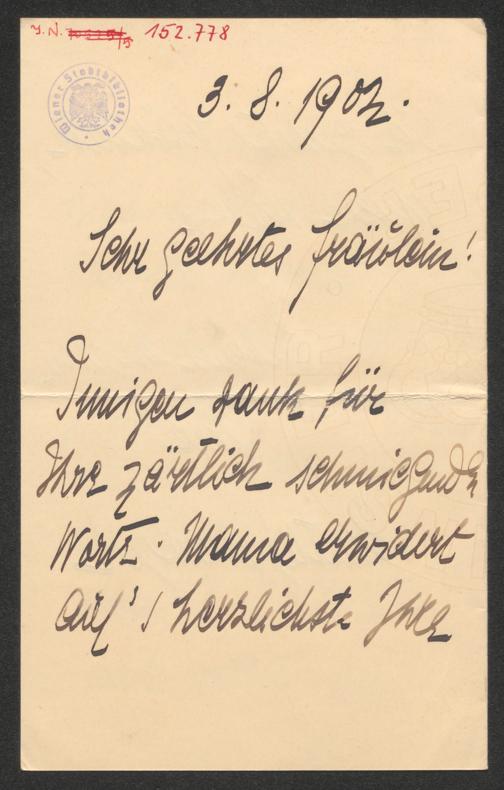 J. N. 152.778
Wiener Stadtbibliothek
3. 8. 1902.
Sehr geehrtes Fräulein!
Innigen Dank für
Ihre zärtlich schmiegende
Worte. Mama erwidert
auf's herzlichste Ihre